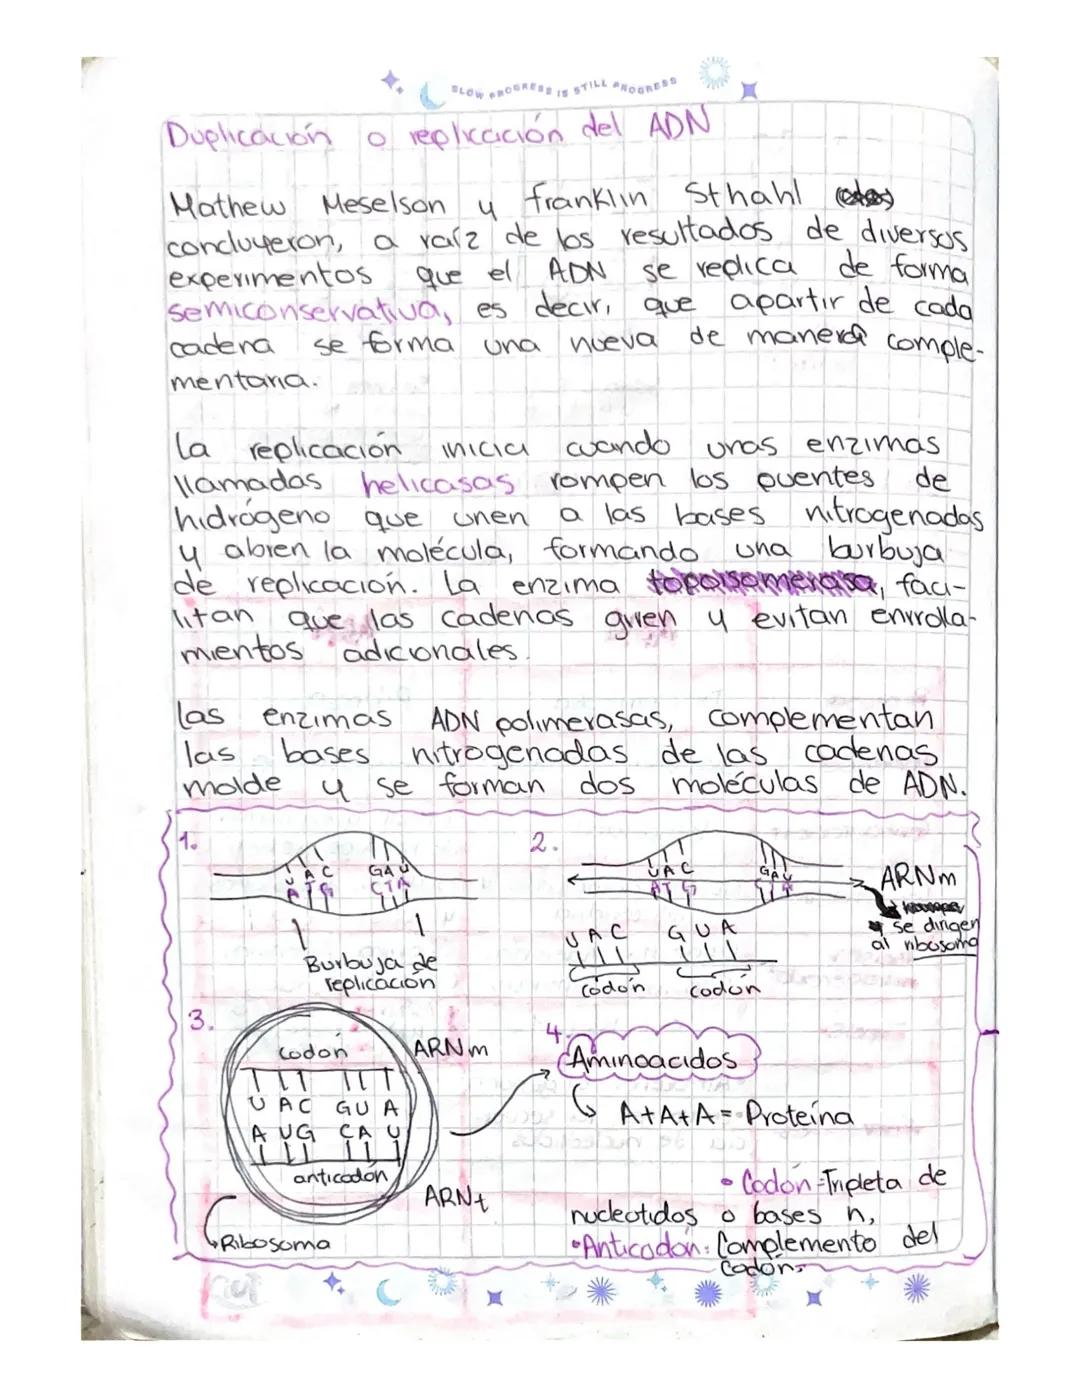 SLOW PROGRESS IS STILL PROGRESS
Duplicación o replicación del ADN
Mathew Meselson y franklin Sthahl
concluyeron, a raíz de los resultados de diversos
experimentos que el ADN se replica de forma
semiconservativa, es decir, que apartir de cada
cadena se forma una nueva de manera comple-
mentaria.
La replicación inicia cuando unas enzimas
llamadas helicasas rompen los puentes de
hidrógeno que unen a las bases nitrogenadas
y abren la molécula, formando una burbuja
de replicación. La enzima topoisomerasa, faci-
litan que las cadenas giren y evitan enrrolla-
mientos adicionales.
Las enzimas ADN polimerasas, complementan
las bases nitrogenadas de las cadenas
molde y se forman dos moléculas de ADN.
1.
U A C G A U
A T G C T A
Burbuja de
replicación
2.
U A C G A U
A T G
ARNm
se dirigen
al ribosoma
U A C G U A
codón codón
3.
codon ARNm
U A C G U A
A U G C A U
anticodón
ARNt
Ribosoma
4.
Aminoacidos
A+A+A= Proteína
• Codón=Tripleta de
nucleotidos o bases n,
• Anticodon: Complemento del
codón.